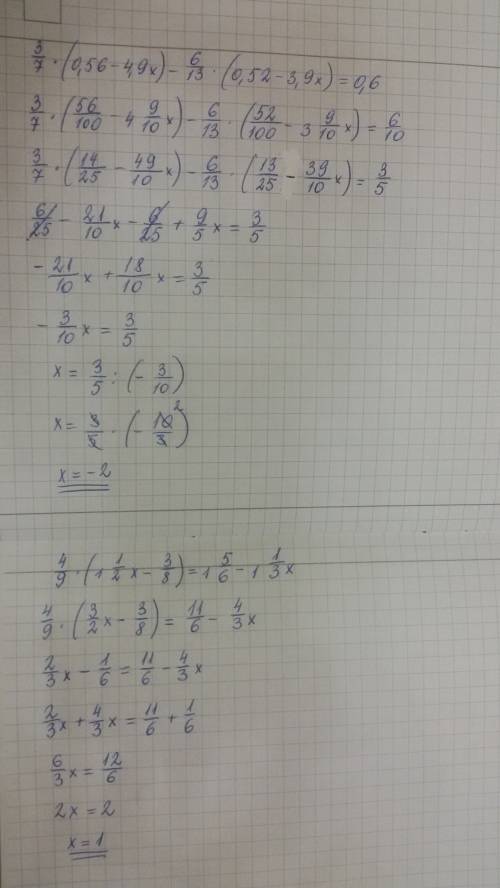 3/7 · (0,56 - 4,9x) - 6/13 · (0,52 - 3,9x) = 0,6
3/7 · (56/100 - 4 9/10 x) - 6/13 · (52/100 - 3 9/10 x) = 6/10
3/7 · (14/25 - 49/10 x) - 6/13 · (13/25 - 39/10 x) = 3/5
6/25 - 21/10 x - 6/25 + 9/5 x = 3/5
- 21/10 x + 18/10 x = 3/5
- 3/10 x = 3/5
x = 3/5 : (- 3/10)
x = 3/5 · (- 10/3) 2
x = -2
4/9 · (1 1/2 x - 3/8) = 1 5/6 - 1 1/3 x
4/9 · (3/2 x - 3/8) = 11/6 - 4/3 x
2/3 x - 1/6 = 11/6 - 4/3 x
2/3 x + 4/3 x = 11/6 + 1/6
6/3 x = 12/6
2x = 2
x = 1